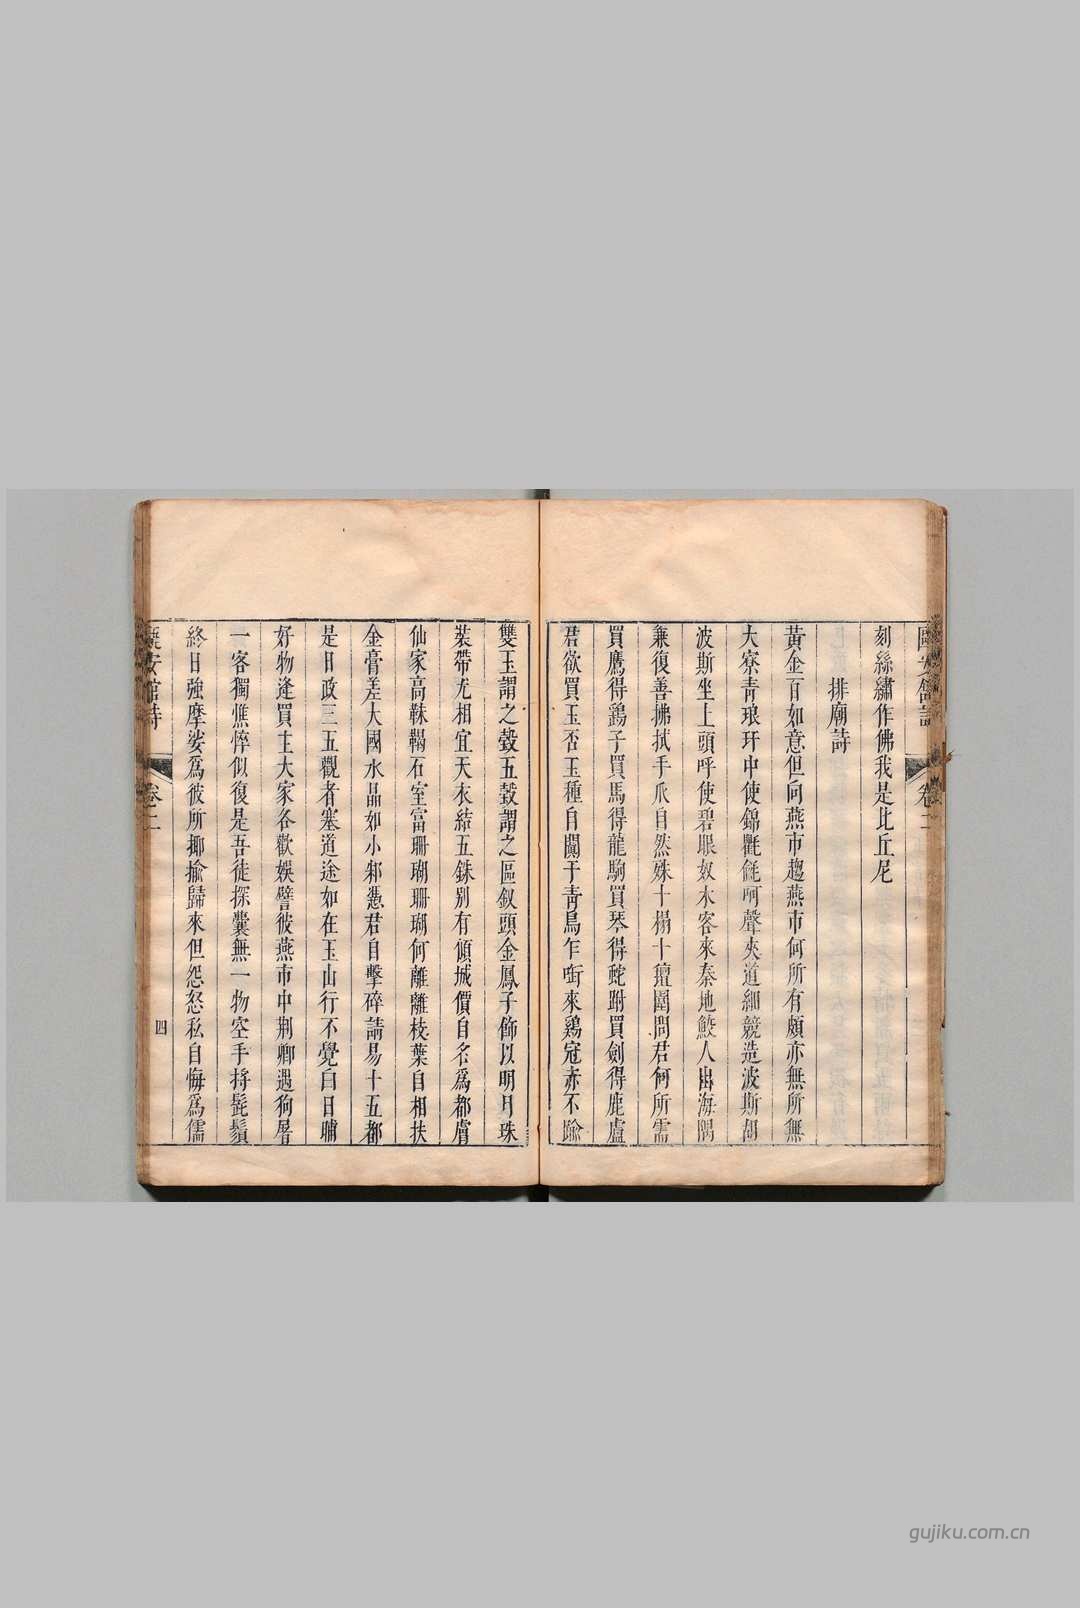 刻絲繡作佛我是比丘尼
排廟詩
黃金百如意但向燕市趨燕市何所有頗亦無所無
大寮青琅玕中使錦氍毹呵聲夾道細競造波斯胡
波斯坐上頭呼使碧眼奴木客來秦地鮫人出海隅
兼復善拂拭手爪自然殊十榻十氊圍問君何所需
買鷹得鷂子買馬得龍駒買琴得蛇跗買劍得鹿盧
君欲買玉否玉種自闐于青鳥乍啣來鷄冠赤不踰
雙玉謂之瑴五瑴謂之區釵頭金鳳子飾以明月珠
裝帶尤相宜天衣結五銖别有傾城價自名爲都盧
仙家高靺鞨石室富珊瑚珊瑚何離離枝葉自相扶
金膏差大國水晶如小邾憑君自擊碎請易十五都
是日政三五觀者塞道途如在玉山行不覺白日晡
好物逢買主大家各歡娛譬彼燕市中荆卿遇狗屠
一客獨憔悴似復是吾徒探囊無一物空手捋髭鬚
終日強摩娑爲彼所揶揄歸來但怨怒私自悔爲儒
安館詩 卷二 四
gujiku.com.cn